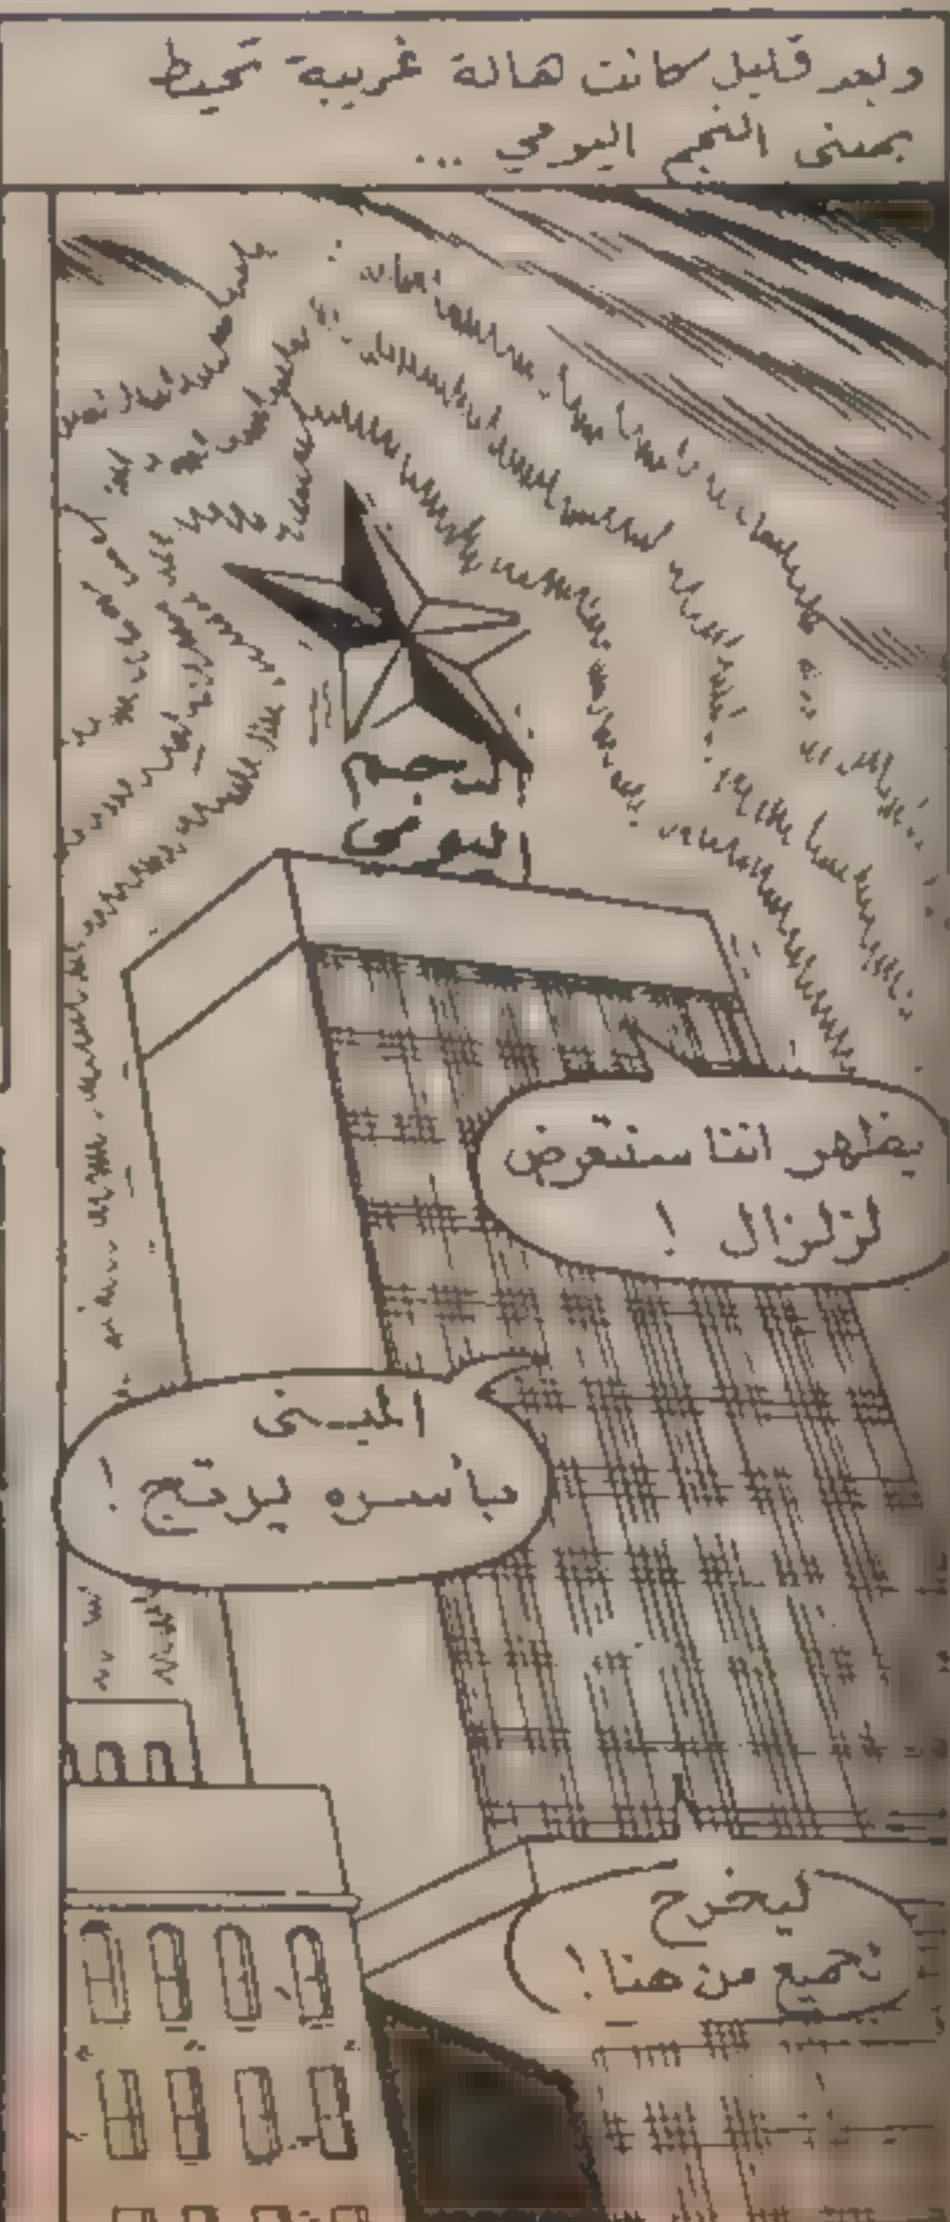 وبعد قليل كانت هالة غريبة تحيط
بمبنى النجم اليومي ...
النجم
اليومي
يظهر اننا سنتعرض
لزلزال !
المبنى
بأسره يرتج !
ليخرج
الجميع من هنا !